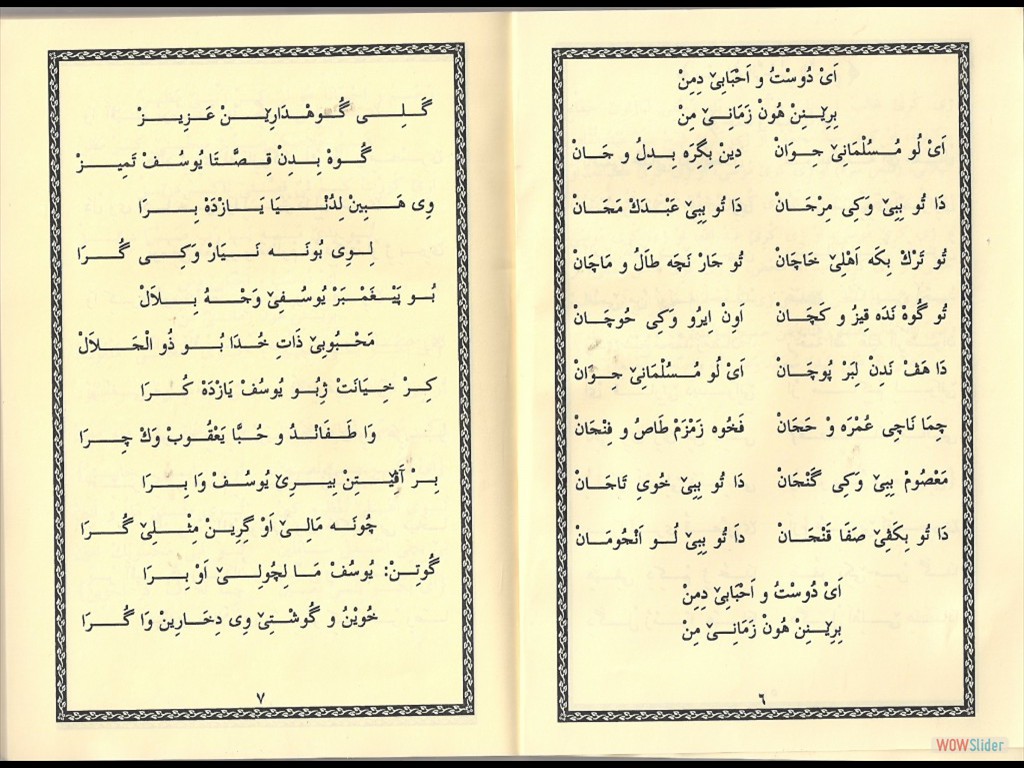 اَیْ دُوسْتُ و اَحْبَابِیْ دِمِنْ
بِرِیْنِنْ هُونْ زَمَانِیْ مِنْ
اَیْ لُو مُسُلْمَانِیْ جِوَانْ دِینْ بِگِرَه بِدِلُ و حَانْ
دَا تُو بِبِیْ وَكِی مِرْجَانْ دَا تُو بِبِیْ عَبْدَكْ مَجَانْ
تُو تَرْكْ بِكَه اَهْلِیْ خَاچَانْ تُو جَارْ نَچَه طَالُ و مَاچَانْ
تُو گُوهْ نَدَه قِیزُ و كَچَانْ اَوِنْ اِیرُو وَكِی حُوچَانْ
دَا هَفْ نَدِنْ لِبَرْ پُوچَانْ اَیْ لُو مُسُلْمَانِیْ جِوَانْ
چِمَا نَاچِی عُمْرَه وْ حَجَانْ فَخُوه زَمْزَمْ طَاصُ و فِنْجَانْ
مَعْصُومْ بِبِیْ وَكِی گَنْجَانْ دَا تُو بِبِیْ خُویِ تَاجَانْ
دَا تُو بِكَڤِیْ صَفَا قَنْجَانْ دَا تُو بِبِیْ لُو اَنْحُومَانْ
اَیْ دُوسْتُ و اَحْبَابِیْ دِمِنْ
بِرِیْنِنْ هُونْ زَمَانِیْ مِنْ
٦
گَلِی گُوهْدَارِیْنْ عَزِیزْ
گُوهْ بِدِنْ قِصَّتَا یُوسُفْ تَمِیزْ
وِی هَبِینْ لِدُنْیَا یَازْدَهْ بِرَا
لِوِی بُونَه نَیَارْ وَكِی گُرَا
بُو پَیْغَمْبَرْ یُوسُفِیْ وَجْهُ بِلاَلْ
مَحْبُوبِیْ ذَاتِ خُدَا بُو ذُو الْجَلاَلْ
كِرْ خِیَانَتْ ژِبُو یُوسُفْ یَازْدَهْ كُرَا
وَا طَفَانْدُ و حُبَّا یَعْقُوبْ وَكْ چِرَا
بِرْ آڤِیْتِنْ بِیرِیْ یُوسُفْ وَا بِرَا
چُونَه مَالِیْ اَوْ گِرِینْ مِثْلِیْ گُرَا
گُوتِنْ: یُوسُفْ مَا لِچُولِیْ اَوْ بِرَا
خُوْینُ و گُوشْتِیْ وِی دِخَارِینْ وَا گُرَا
٧
WOWSlider